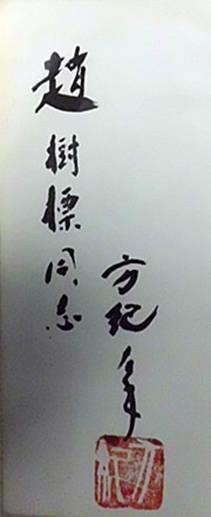 趙樹標同志
方纪